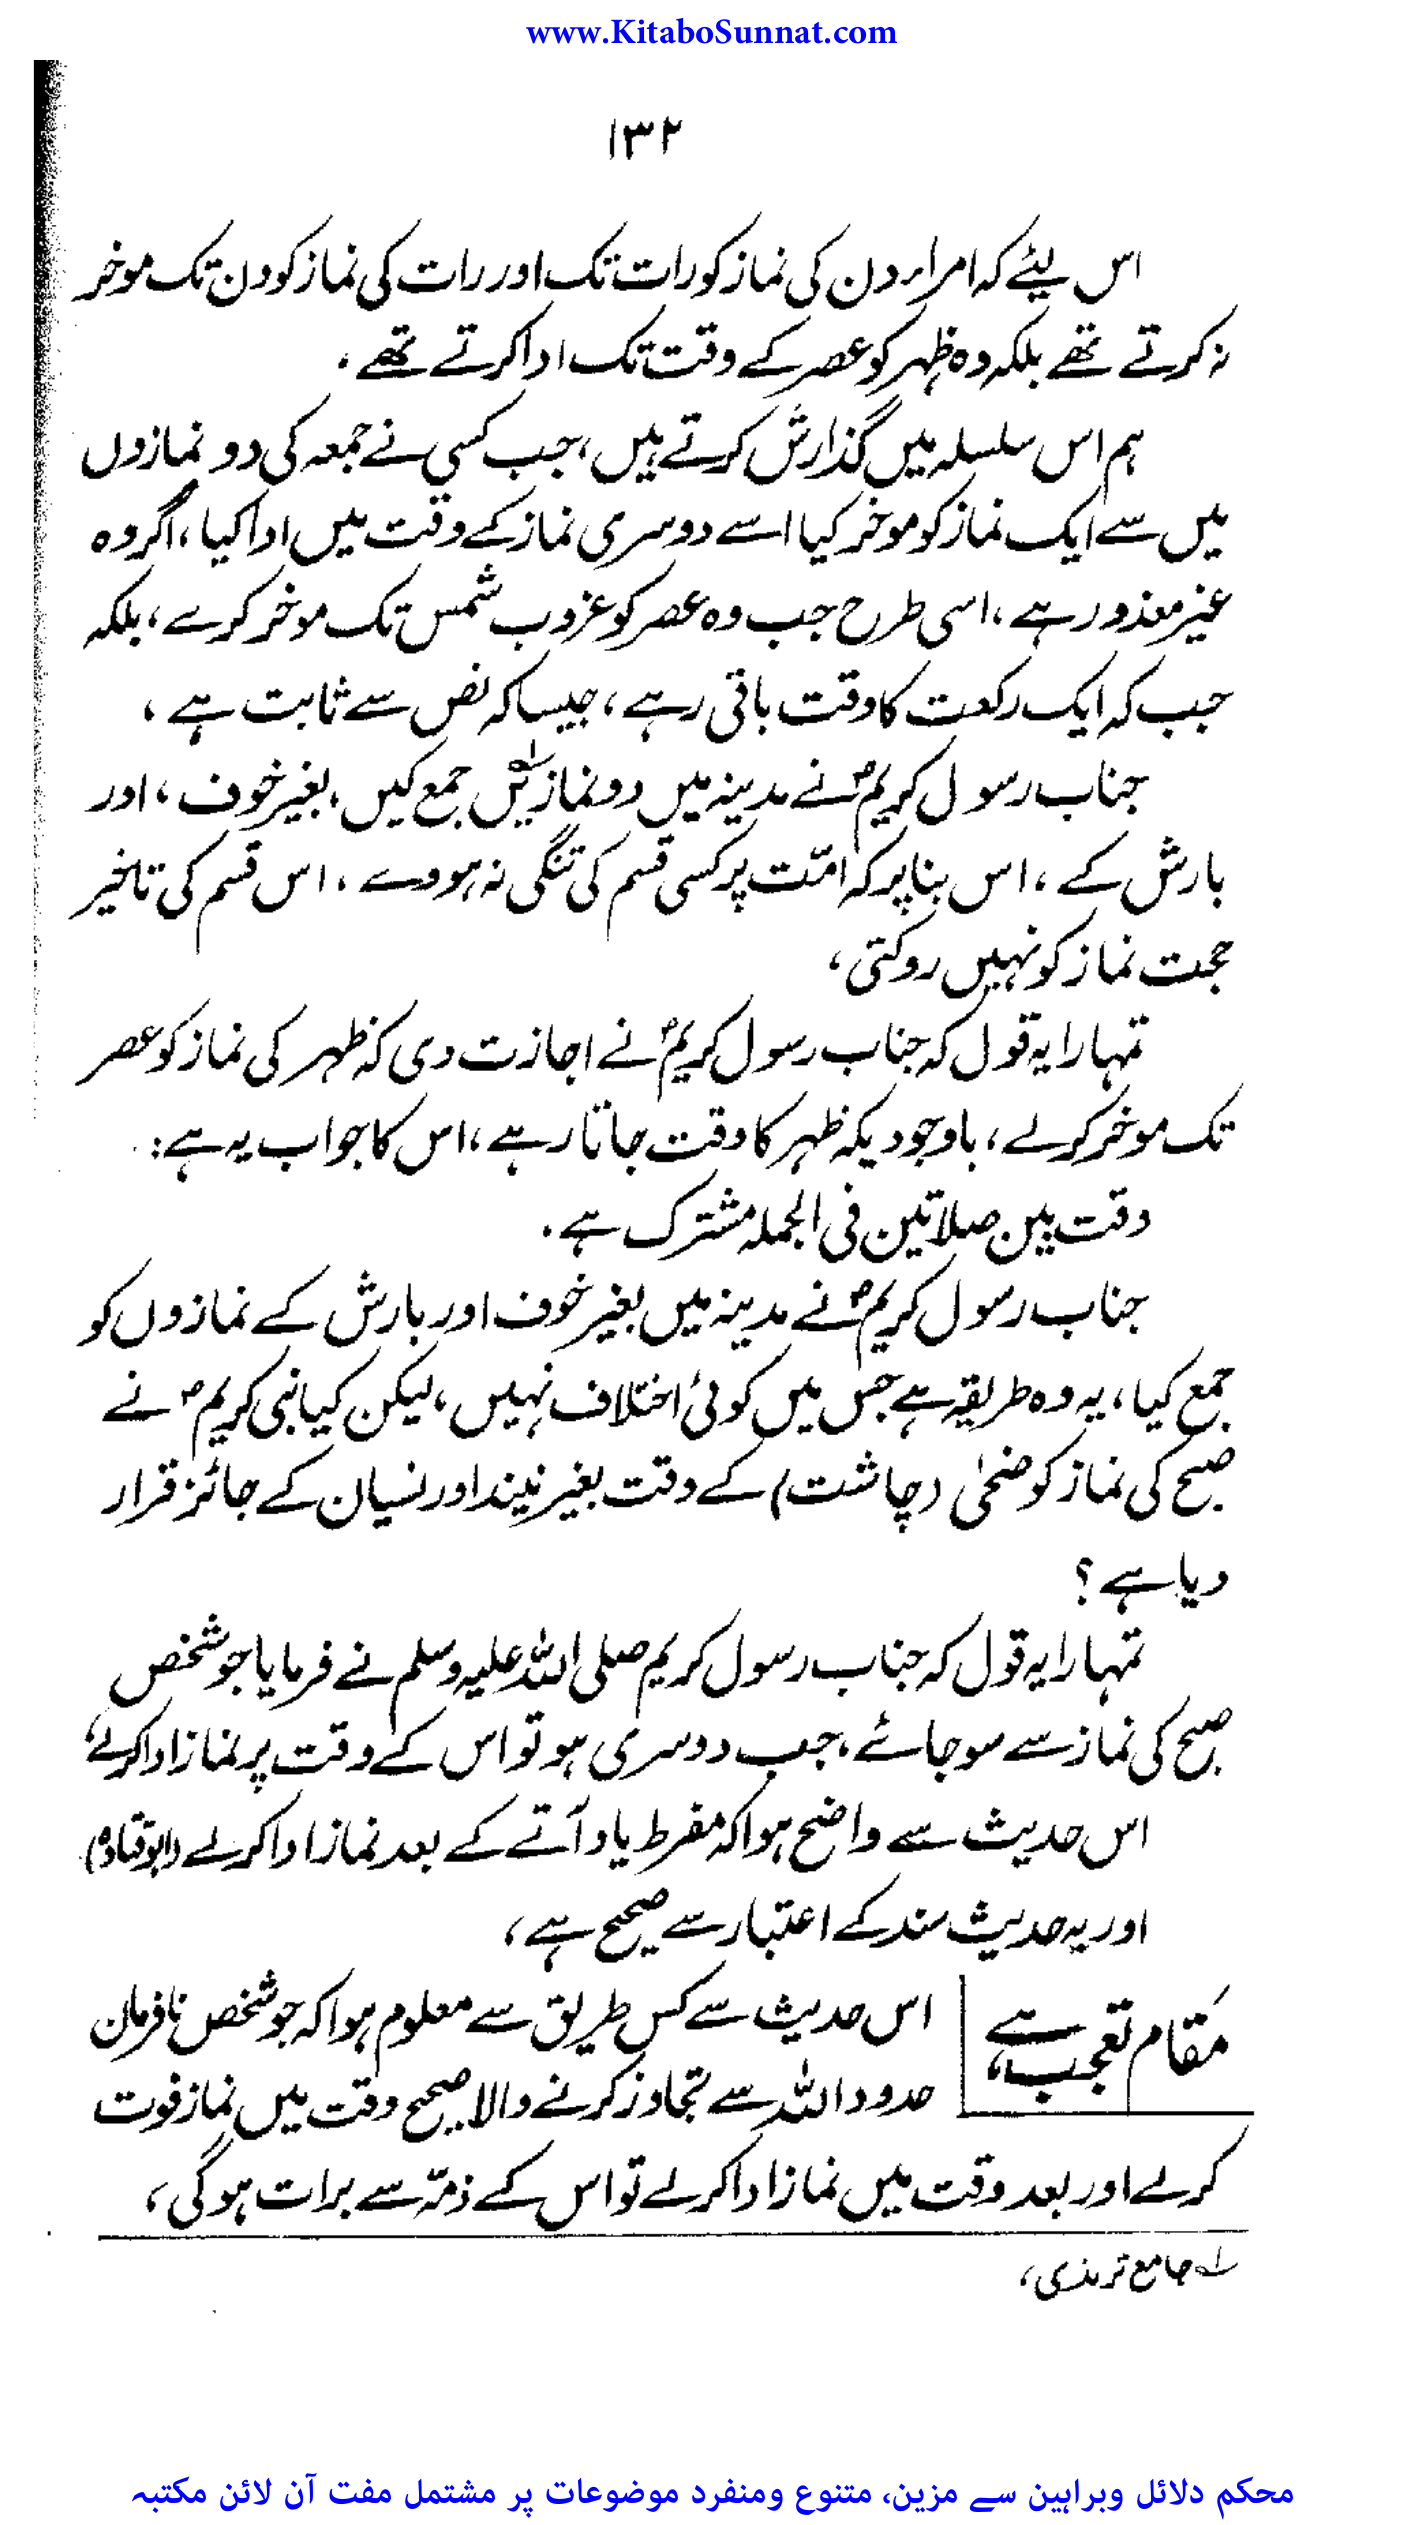 www.KitaboSunnat.com
۱۳۲
اس لیئے کہ امراء دن کی نماز کو رات تک اور رات کی نماز کو دن تک موخر
نہ کرتے تھے بلکہ وہ ظہر کو عصر کے وقت تک ادا کرتے تھے،
ہم اس سلسلہ میں گذارش کرتے ہیں، جب کسی نے جمعہ کی دو نمازوں
میں سے ایک نماز کو موخر کیا اسے دوسری نماز کے وقت میں ادا کیا، اگر وہ
غیر معذور ہے، اسی طرح جب وہ عصر کو غروب شمس تک موخر کرے، بلکہ
جب کہ ایک رکعت کا وقت باقی رہے، جیسا کہ نص سے ثابت ہے،
جناب رسول کریمؐ نے مدینہ میں دو نمازیں ؎۱ جمع کیں، بغیر خوف، اور
بارش کے، اس بنا پر کہ امّت پر کسی قسم کی تنگی نہ ہووے، اس قسم کی تاخیر
حجت نماز کو نہیں روکتی،
تمہارا یہ قول کہ جناب رسول کریمؐ نے اجازت دی کہ ظہر کی نماز کو عصر
تک موخر کرلے، باوجودیکہ ظہر کا وقت جاتا رہے، اس کا جواب یہ ہے:
وقت بین صلاتین فی الجملہ مشترک ہے.
جناب رسول کریمؐ نے مدینہ میں بغیر خوف اور بارش کے نمازوں کو
جمع کیا، یہ وہ طریقہ ہے جس میں کوئی اختلاف نہیں، لیکن کیا نبی کریمؐ نے
صبح کی نماز کو ضحیٰ (چاشت) کے وقت بغیر نیند اور نسیان کے جائز قرار
دیا ہے؟
تمہارا یہ قول کہ جناب رسول کریم صلی اللہ علیہ وسلم نے فرمایا جو شخص
صبح کی نماز سے سو جائے، جب دوسری ہو تو اس کے وقت پر نماز ادا کرلے،
اس حدیث سے واضح ہوا کہ مفرط یاد آتے کے بعد نماز ادا کرلے (ابوقتادہ)
اور یہ حدیث سند کے اعتبار سے صحیح ہے،
مقام تعجب ہے، اس حدیث سے کس طریق سے معلوم ہوا کہ جو شخص نافرمان
حدود اللہ سے تجاوز کرنے والا صحیح وقت میں نماز فوت
کرلے اور بعد وقت میں نماز ادا کرلے تو اس کے ذمّہ سے برات ہوگی،
؎۱ جامع ترمذی،
محکم دلائل وبراہین سے مزین، متنوع ومنفرد موضوعات پر مشتمل مفت آن لائن مکتبہ